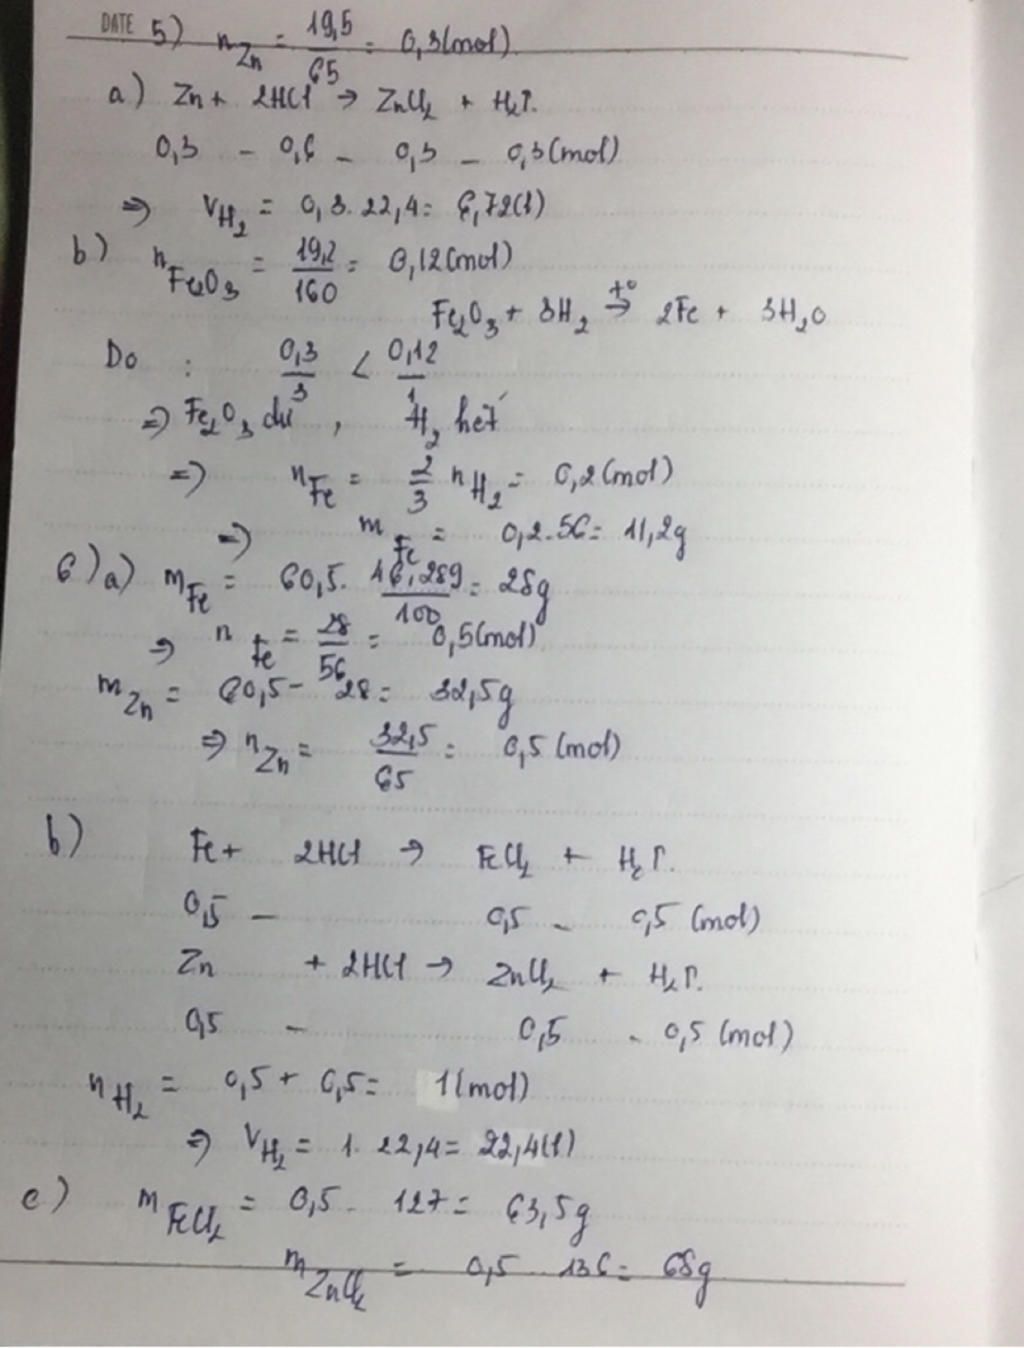 DATE 5) nZn = 19,5/65 = 0,3(mol)
a) Zn + 2HCl → ZnCl₂ + H₂↑.
0,3 - 0,6 - 0,3 - 0,3(mol)
⇒ VH₂ = 0,3.22,4= 6,72(l)
b) nFe₂O₃ = 19,2/160 = 0,12(mol)
Fe₂O₃ + 3H₂ →t° 2Fe + 3H₂O
Do : 0,3/3 < 0,12/1
⇒ Fe₂O₃ dư , H₂ hết
⇒ nFe = 2/3 nH₂ = 0,2(mol)
⇒ mFe = 0,2.56= 11,2g
6) a) mFe = 60,5. 46,289/100 = 28g
⇒ nFe = 28/56 = 0,5(mol)
mZn = 60,5- 28= 32,5g
⇒ nZn = 32,5/65 = 0,5(mol)
b) Fe + 2HCl → FeCl₂ + H₂↑.
0,5 - 0,5 - 0,5 (mol)
Zn + 2HCl → ZnCl₂ + H₂↑.
0,5 - 0,5 - 0,5 (mol)
nH₂ = 0,5 + 0,5= 1(mol)
⇒ VH₂ = 1. 22,4= 22,4(l)
c) mFeCl₂ = 0,5. 127= 63,5g
mZnCl₂ = 0,5 136= 68g